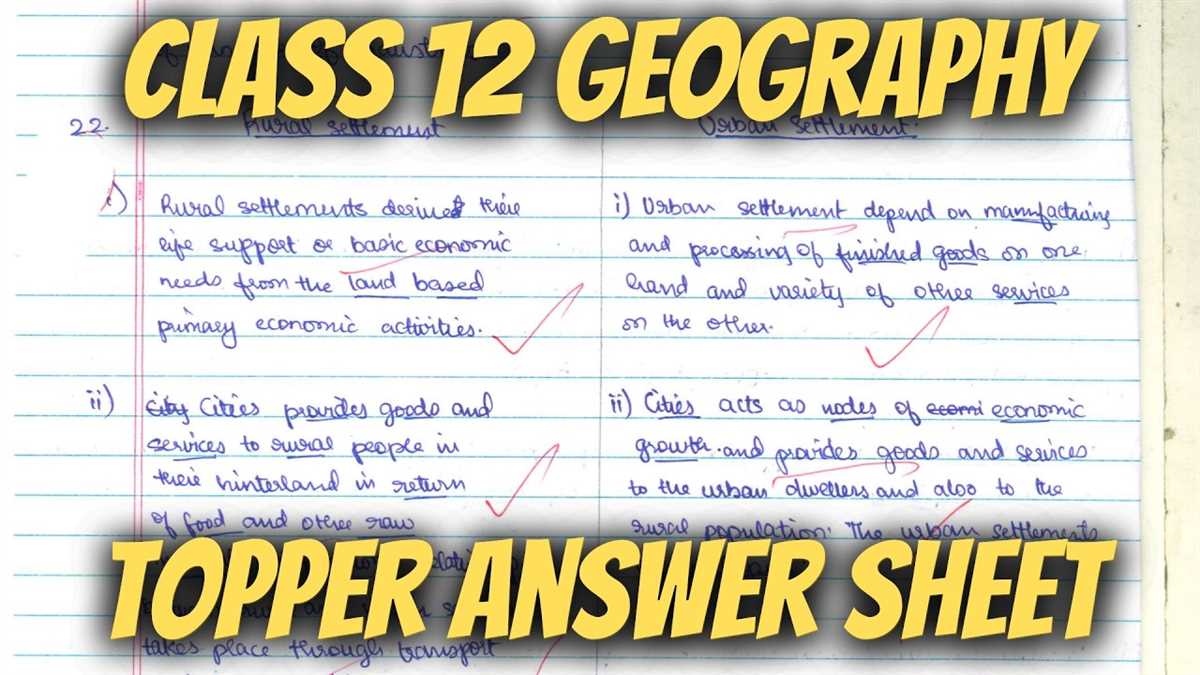 CLASS 12 GEOGRAPHY
22. Rural settlement
Urban settlement.
i) Rural settlements derived their
life support or basic economic
needs from the land based
primary economic activities.
i) Urban settlement depend on manufacturing
and processing of finished goods on one
hand and variety of other services
on the other.
ii) city Cities provides goods and
services to rural people in
their hinterland in return
of food and other raw
ii) Cities acts as nodes of econmi economic
growth and provides goods and services
to the urban dwellers and also to the
rural population. The urban settlements
TOPPER ANSWER SHEET
takes place through transport